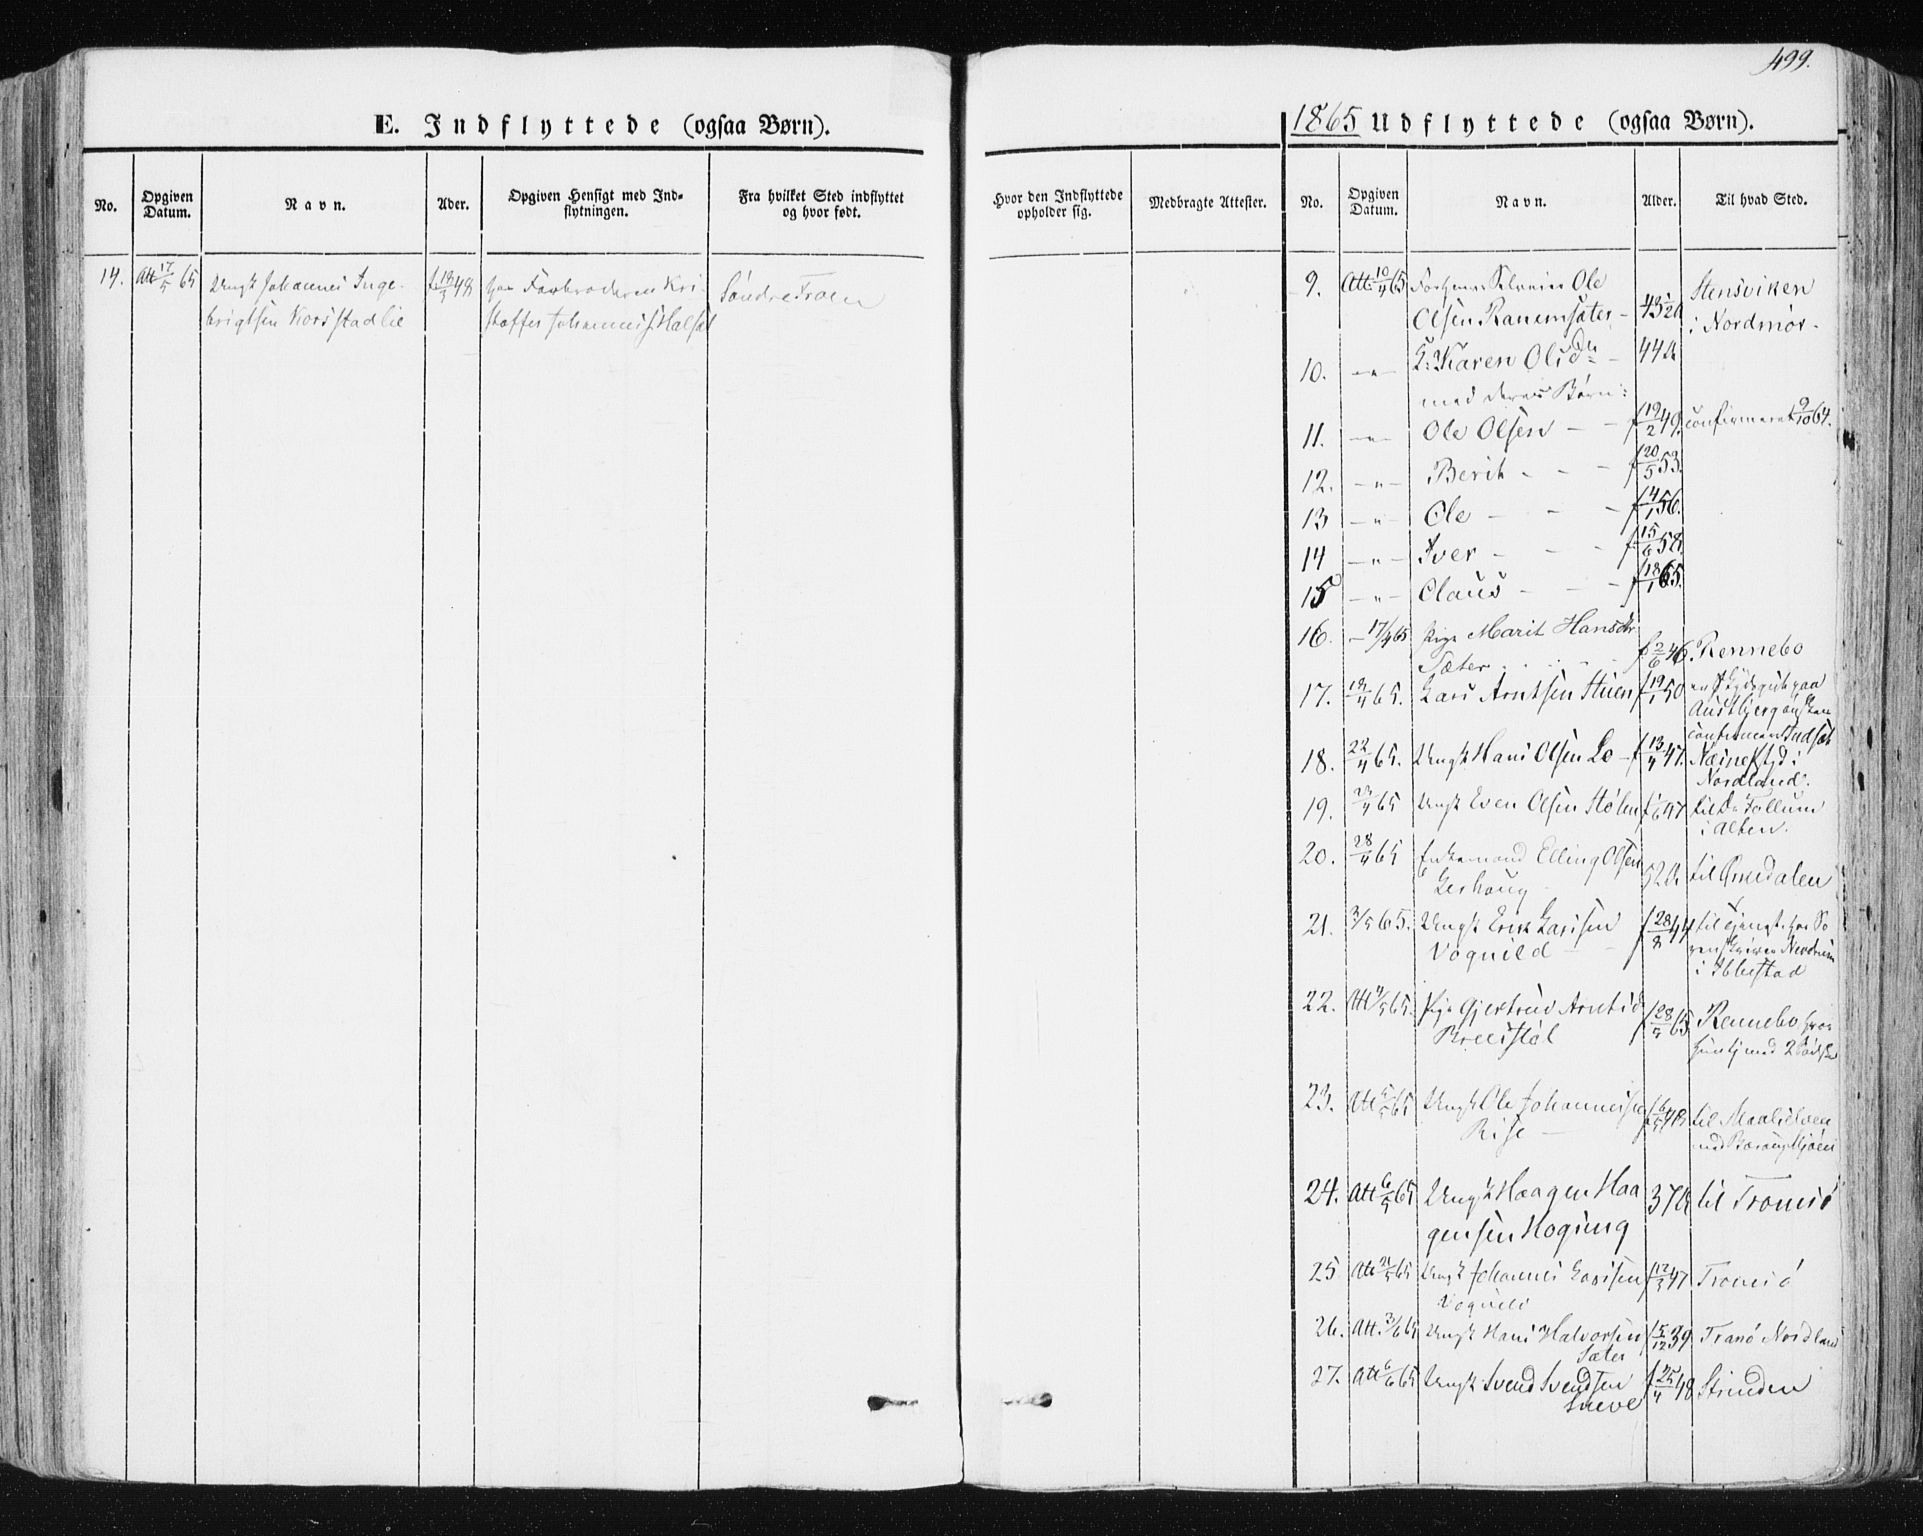 499.
E. Indflyttede (ogsaa Børn).
1865 Udflyttede (ogsaa Børn).
No. Opgiven Datum. Navn. Ader. Opgiven Hensigt med Indflytningen. Fra hvilket Sted indflyttet og hvor født.
Hvor den Indflyttede opholder sig. Medbragte Attester. No. Opgiven Datum. Navn. Alder. Til hvad Sted.
14. Att 17/5 65 Ungk Johannes Inge- f 48 hos Farbroderen Kri- Søndre Troen
brigtsen Korsstadlie stoffer Johannes Halset
9. Att. 10/4 65 Ole Stensviken
Olsen Ranemsæter - 43 1/2 a i Nordmør.
10. -"- K: Karen Olsdr - 44 a
med deres Børn:
11. -"- Ole Olsen - - f 19/2 49. confirmeret 9/10 64.
12. -"- Berit - - - f 20/5 53.
13 -"- Ole - - - f 4/1 56.
14 -"- Iver - - - f 15/6 58.
15 -"- Claus - - - f 18/1 65.
16. - 17/4 65 Pige Marit Hansdtr
Sæter f 2/6 46. Rennebo
17. 18/4 65. Lars Arntsen Stuen f 19/1 50 paa
18. 22/4 65. Ungk Hans Olsen Lo - f 13/4 47. i
Nordland.
19. 65 Ungk Even Olsen Stølen 47 Follum
i Alten.
20. 28/4 65 Enkemand Elling Olsen
52 a til Ømedalen
21. 3/5 65. Ungk Erik Larsen f 28/8 44 til
Vognild
i Ibbestad
22. Att 4/5 65. Pige Gjertrud Arntsd
f 28/5 65 Rennebo hvor
med 2
23. Att 5/5 65 Ungk Ole Johannessen
Rise - til
24. Att 6/5 65 Ungk Haagen Haa 37 a til Tromsø
gensen Hogseng
25 Att 65 Ungk Johannes Larssen f 12/3 47 Tromsø
Vognild
26. Att. 3/6 65 Ungk Hans Halvorsen f 5/12 39 Tranø Nordland
Sæter
27. Att 6/6 65 Ungk Svend Svendsen f 25/4 48 Strinden